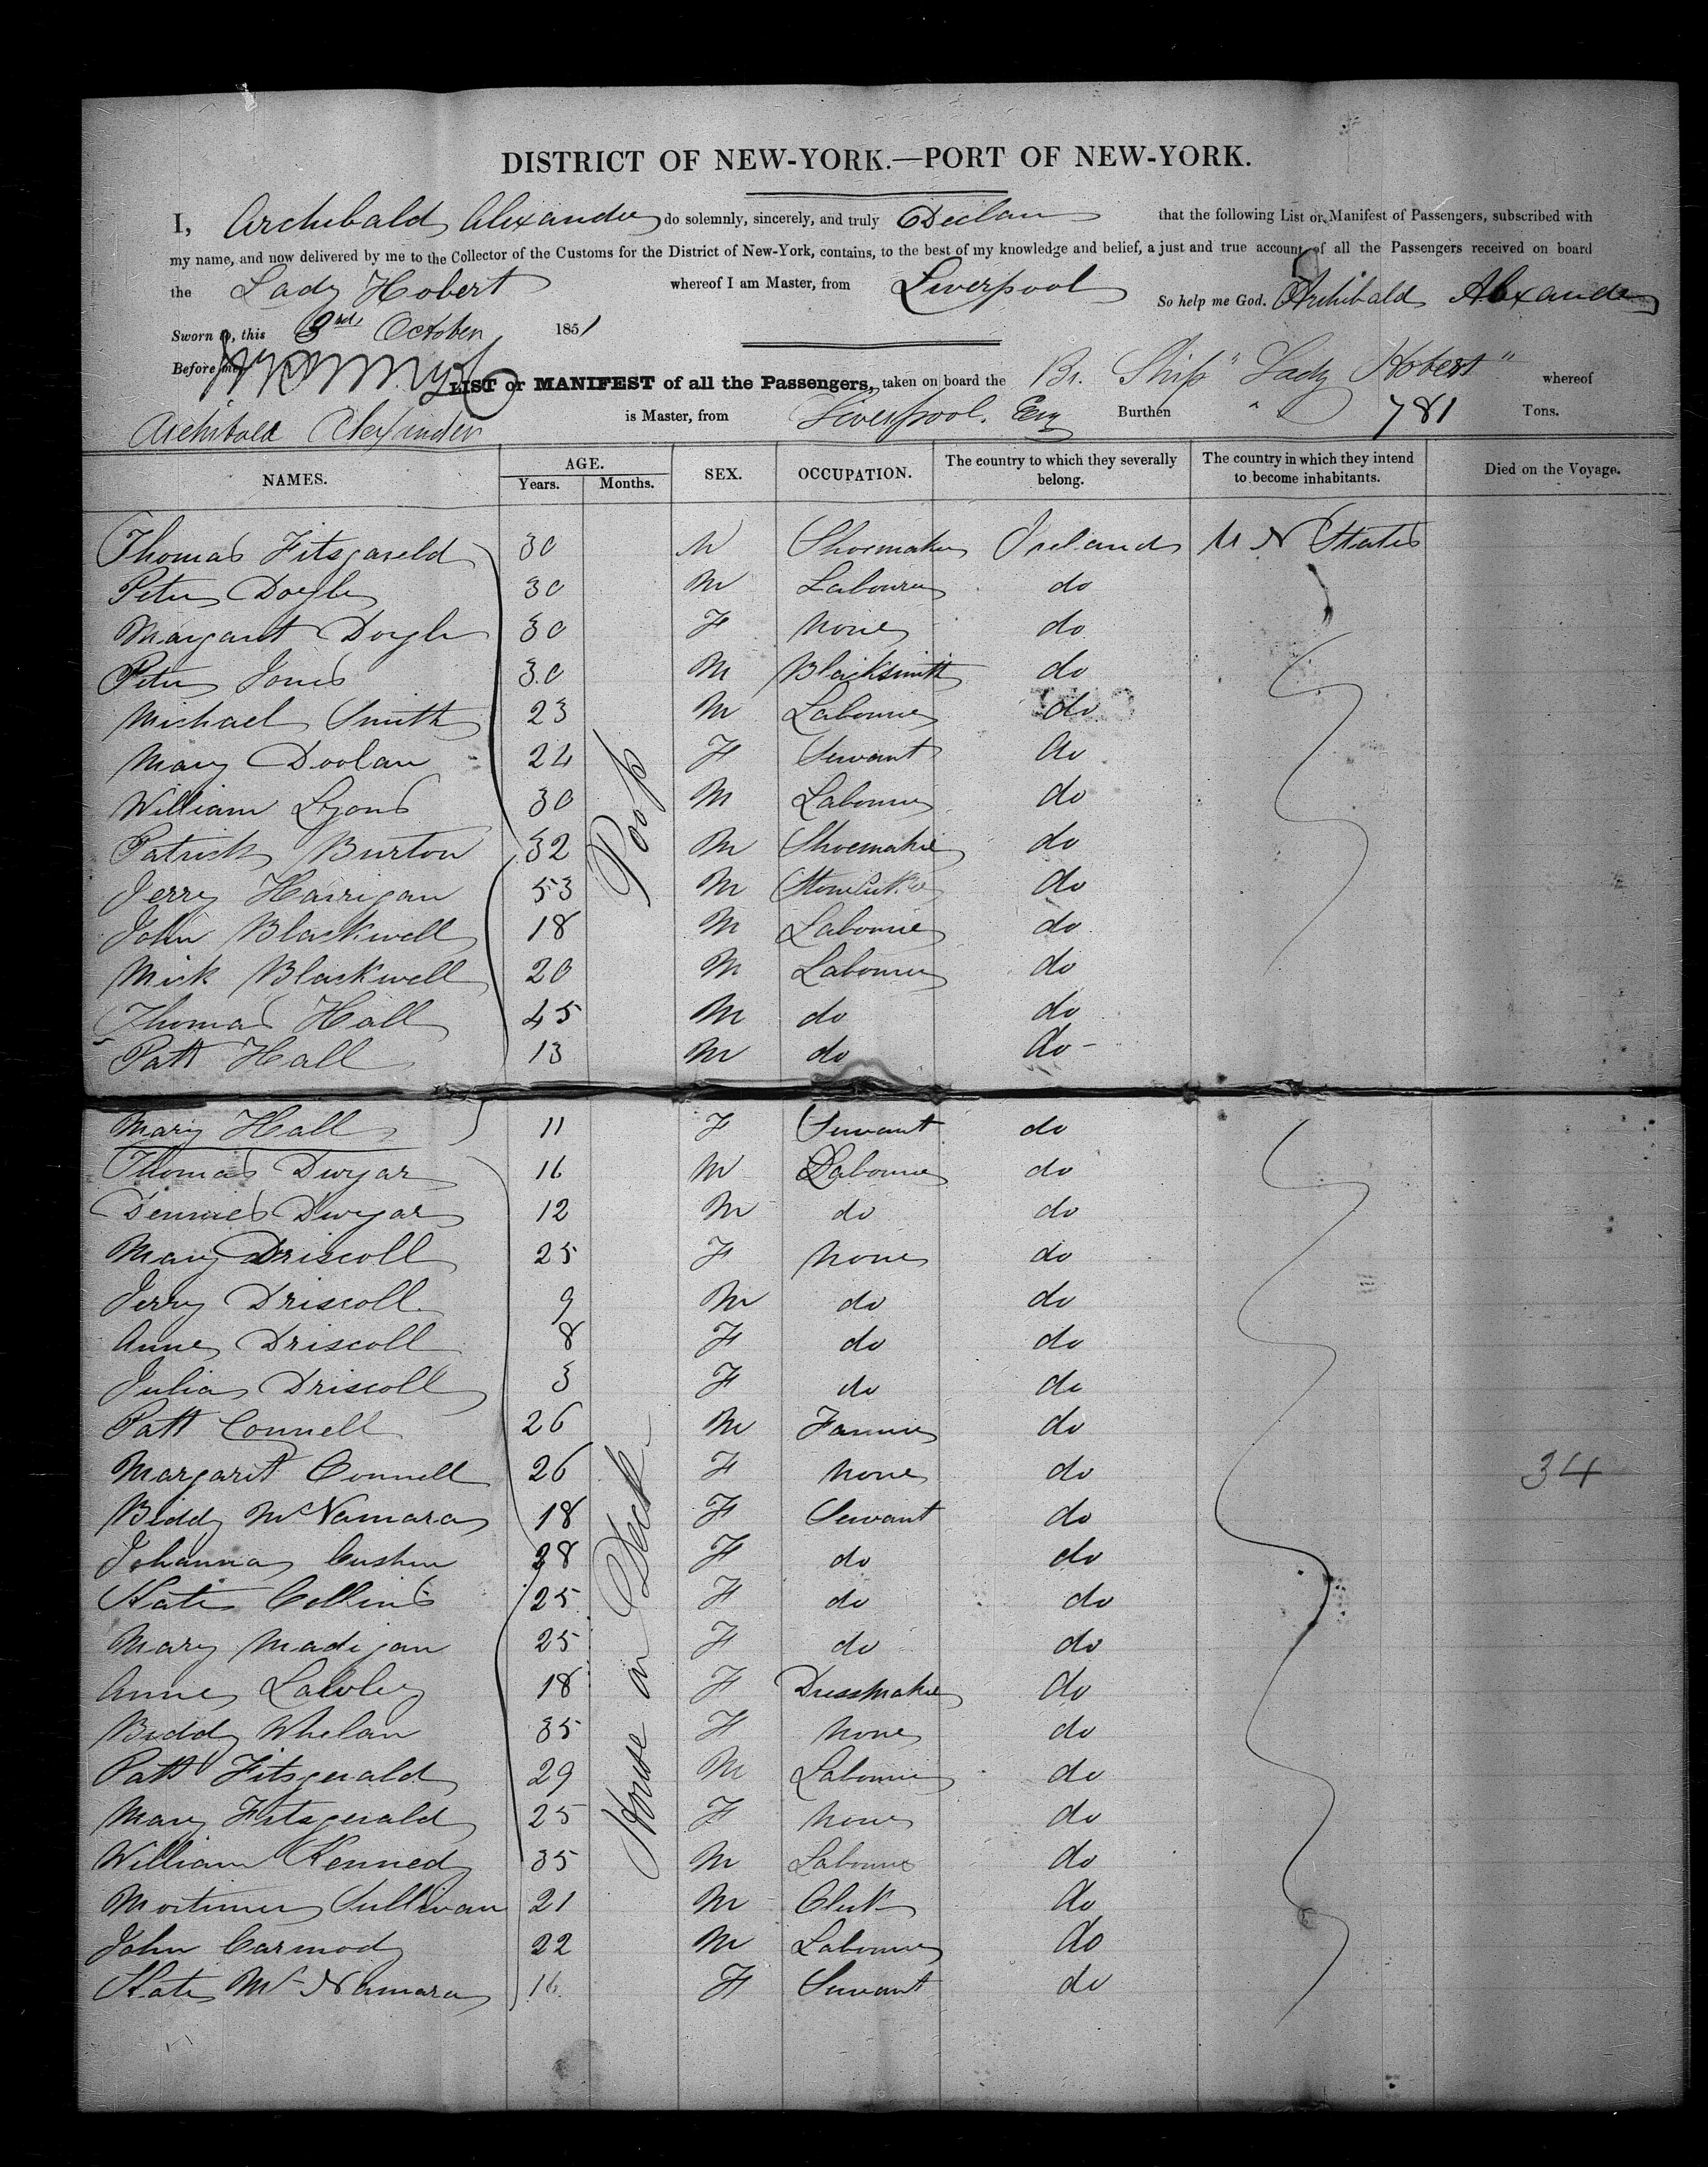 DISTRICT OF NEW-YORK.—PORT OF NEW-YORK.
I, Archibald Alexander do solemnly, sincerely, and truly Declare that the following List or Manifest of Passengers, subscribed with
my name, and now delivered by me to the Collector of the Customs for the District of New-York, contains, to the best of my knowledge and belief, a just and true account of all the Passengers received on board
the Lady Hobert whereof I am Master, from Liverpool So help me God. Archibald Alexander
Sworn to, this 3rd October 1851
Before me,
LIST or MANIFEST of all the Passengers, taken on board the Br. Ship "Lady Hobert" whereof
Archibald Alexander is Master, from Liverpool. Eng Burthen 781 Tons.
NAMES. AGE. Years. Months. SEX. OCCUPATION. The country to which they severally belong. The country in which they intend to become inhabitants. Died on the Voyage.
Thomas Fitsgareld 30 M Shoemaker Ireland U N States
Peter Doyle 30 M Labourer do
Margaret Doyle 30 F None do
Peter Jones 30 M Blacksmith do
Michael Smith 23 M Labourer do
Mary Doolan 24 F Servant do
William Lyons 30 M Labourer do
Poop
Patrick Burton 32 M Shoemaker do
Jerry Harrigan 53 M Stonecutter do
John Blackwell 18 M Labourer do
Mick Blackwell 20 M Labourer do
Thomas Hall 45 M do do
Patt Hall 13 M do do
Mary Hall 11 F Servant do
Thomas Dwyar 16 M Labourer do
Dennies Dwyar 12 M do do
Mary Driscoll 25 F None do
Jerry Driscoll 9 M do do
Anne Driscoll 8 F do do
Julia Driscoll 3 F do do
Patt Connell 26 M Farmer do
Margarit Connell 26 F None do 34
Biddy McNamara 18 F Servant do
Johanna Cushen 28 F do do
Kate Collins 25 F do do
House on Deck
Mary Madigan 25 F do do
Anne Lawley 18 F Dressmaker do
Biddy Whelan 35 F None do
Patt Fitsgerald 29 M Labourer do
Mary Fitsgerald 25 F None do
William Kennedy 35 M Labourer do
Mortimer Sullivan 21 M Clerk do
John Carmody 22 M Labourer do
Kate McNamara 16 F Servant do